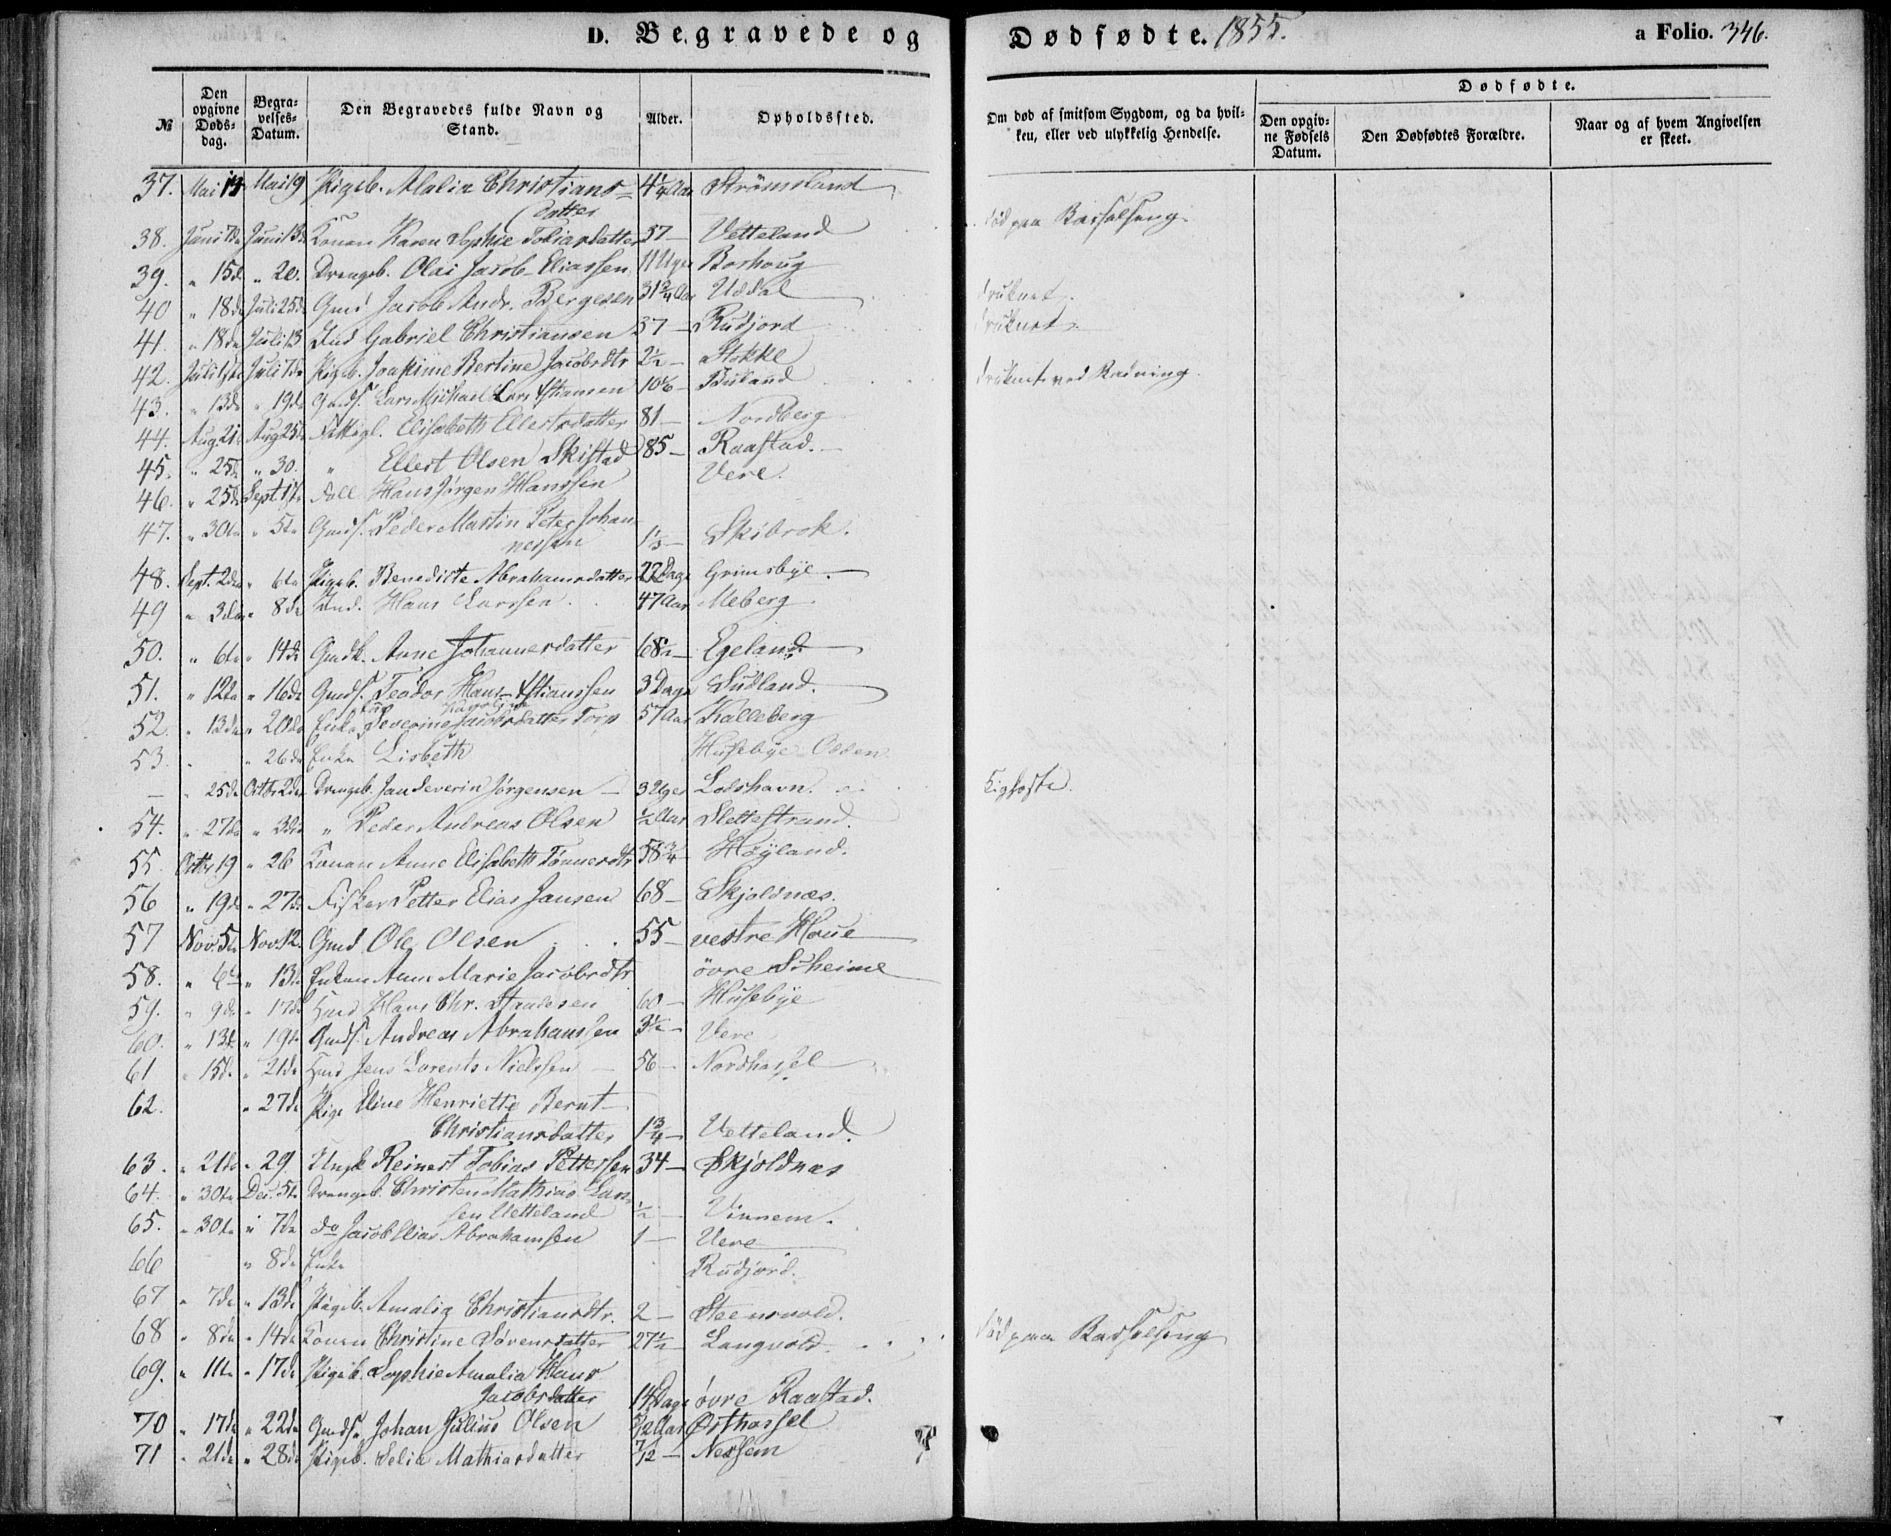 D. Begravede og Dødfødte. 1855. a Folio. 346.
№ Den opgivne Døds-dag. Begra-velses-Datum. Den Begravedes fulde Navn og Stand. Alder. Opholdssted. Om død af smitsom Sygdom, og da hvil-ken, eller ved ulykkelig Hendelse. Dødfødte. Den opgiv-ne Fødsels Datum. Den Dødfødtes Forældre. Naar og af hvem Angivelsen er skeet.
37. Mai 13 Mai 19 Pigeb. Malia Christians-datter 4 1/4 Aar Strømsland
38. Juni 7de Juni 13 Konen Karen Sophie Tobiasdatter 37 — Vetteland død paa Barselseng.
39. " 15d " 20. Drengeb. Olai Jacob Eliassen 11 Uger Borhoug
40 " 18de Juli 25de Gmd Jacob Andr. Bergesen 31 3/4 Aar Uddal druknet.
41. " 18de Juli 13 Ind Gabriel Christiansen 37 — Rudjord druknet.
42. Juli Juli 7de Pigeb. Joakime Bertine Jacobsdtr 2 1/2 — Stokke
43. " 13de " 19de Gmds. Lars Michael Lars 10 — Buland druknet ved Badning.
44. Aug 21 Aug 25 Elisabeth Ellertsdatter 81 — Nordberg
45. " 25d " 30. " Ellert Olsen Skistad 85 — Raastad.
46. " 25de Sept. 1ste Hans Jørgen Hanssen Vere.
47. " 30te " 5te Gmds. Peder Martin Peter Johannessen 1 1/3 — Skibrok.
48. Sept. 2den " 6te Pigeb. Benedicte Abrahamsdatter 22 Dage Grimsbye.
49 " 3die " 8de Hans Larssen. 47 Aar Meberg
50. " 6te " 14de Gmdk. Anne Johannesdatter 68 1/2 — Egeland
51. " 12te " 16de Gmds. Teodor Hans 3 Dage Sudland.
52. " 13de " 20de Enke Severine Karoline Jacobsdatter Torp 57 Aar Kalleberg
53. " 26de Enke Lisbeth Husebye Odden
— " 25de Octbr 2den Drengeb. Jan Severin Jørgensen — 3 Uger Lodshavn. Kighoste.
54. " 27de " 3die " Peder Andreas Olsen 1/2 Aar Slettestrand.
55. Octbr 19 " 26 Konen Anne Elisabeth Tønnesdtr 58 3/4 Høyland.
56 " 19de " 27de Fisker Petter Elias Jansen 68 — Skjoldnæs.
57 Nov 5te Nov 12. Gmd Ole Olsen 55 — vestre Houe
58. " 6te " 13de Enken Anne Marie Jacobsdtr øvre Skeime
59. " 9de " 17de Hans Chr. 60 — Husebye
60. " 13de " 19de Gmds. Andreas Abrahamsen 3 1/2 — Vere
61 " 15de " 21de Jens Lorents Nielssen — 56 — Nordhassel
62. " 27de Pige Eline Henriette Bernt-Christiansdatter 1 3/4 — Vetteland.
63. " 21de " 29 Ungk Reinert Tobias Pettersen 34 — Skjoldnæs
64. " 30te Dec. 5te Drengeb. Christen Mathias Larssen Vetteland 1/2 — Vinnem.
65. " 30te " 7de do Jacob Elias Abrahamsen 1 — Vere
66 " 8de Enke Rudjord.
67 " 7de " 13de Pigeb. Amalia Christiansdtr. 2 — Steensvold.
68 " 8de " 14de Konen Christine Sørensdatter 27 1/2 — Langvold. død paa Barselseng
69. " 11te " 17de Pigeb. Sophie Amalia Hans Jacobsdatter 14 Dage øvre Raastad.
70 " 17de " 22de Gmds. Johan Julius Olsen Aar Østhassel
71 " 21de " 28de Pigeb. Selia Mathiasdatter 7/12 — Nessem